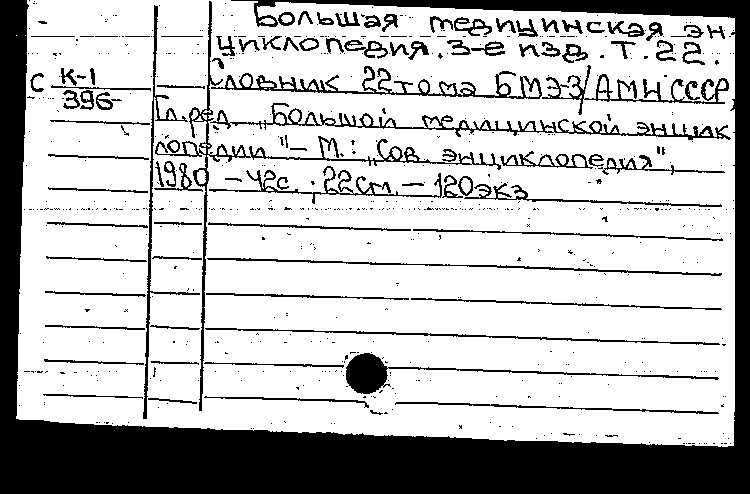 Большая медицинская эн-
циклопедия. 3-е изд. Т. 22.
С К-1
396
Словник 22 тома БМЭ-3/АМН СССР,
Гл. ред. „Большой медицинской энцик
лопедии" – М.: „Сов. энциклопедия",
1980 – 42с. ; 22см. – 120экз